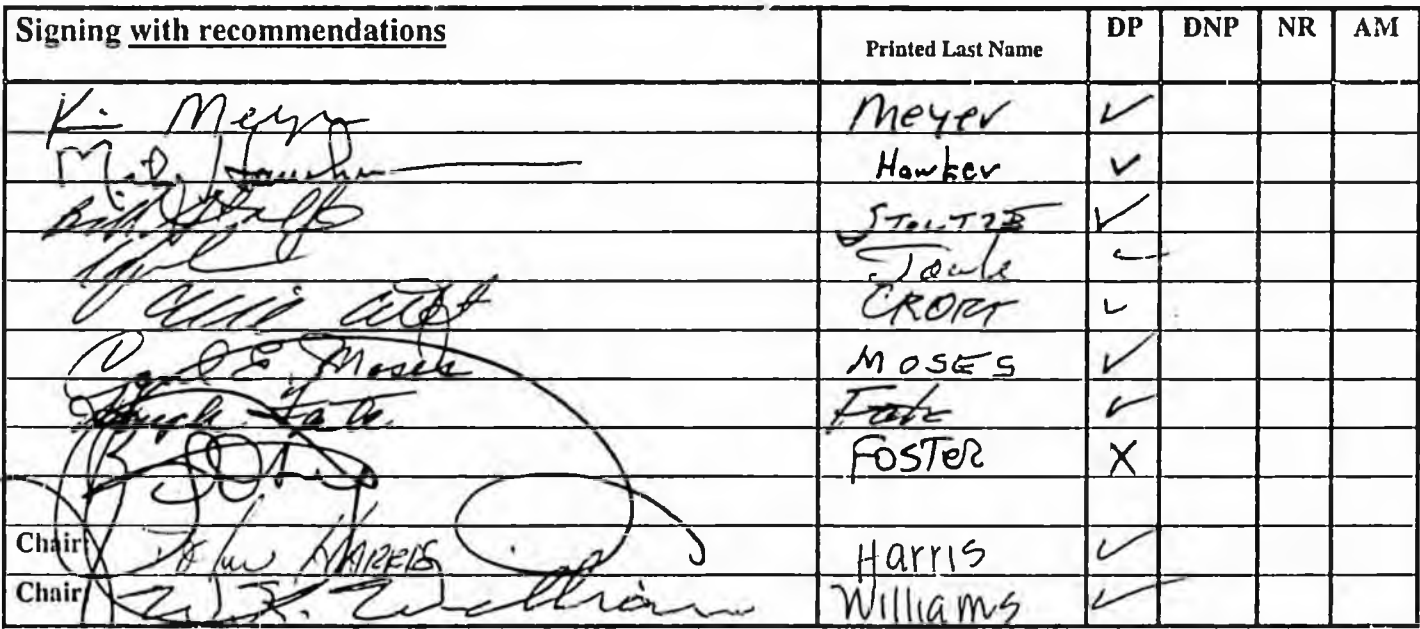 Signing with recommendations Printed Last Name DP DNP NR AM
Kim Meyer Meyer ✓
M.D. Hawker Hawker ✓
Bill Stoltze STOLTZE ✓
✓
CROFT ✓
E. Moses MOSES ✓
Hugh Fate Fate ✓
FOSTER X
Chair: John HARRIS Harris ✓
Chair: Williams Williams ✓